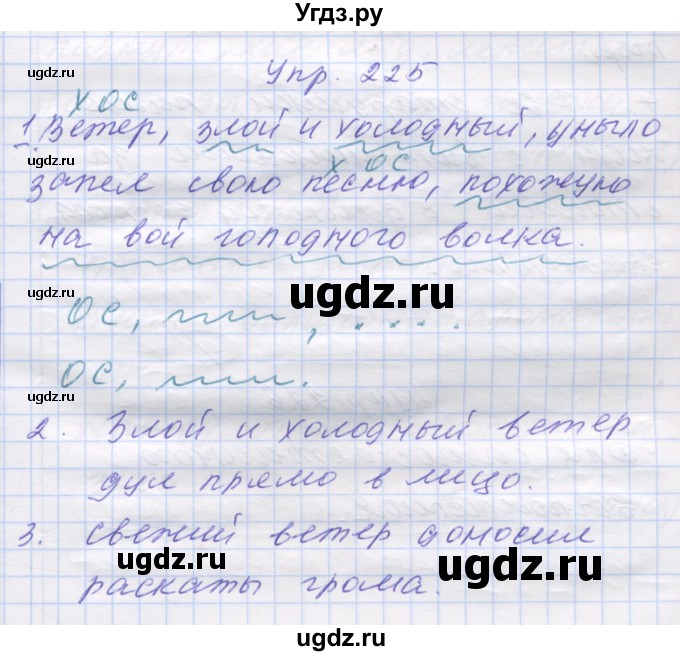 Угдз.ру
ugdz.ru ugdz.ru
Упр. 225
х ОС
1. Ветер, злой и холодный, уныло
х ОС
ugdz.ru ugdz.ru
запел свою песню, похожую
на вой голодного волка.
ugdz.ru
ugdz.ru
ОС, , .
ugdz.ru ugdz.ru
ОС, .
2. Злой и холодный ветер
дул прямо в лицо.
ugdz.ru ugdz.ru
3. Свежий ветер доносил
ugdz.ru
ugdz.ru
раскаты грома.
ugdz.ru